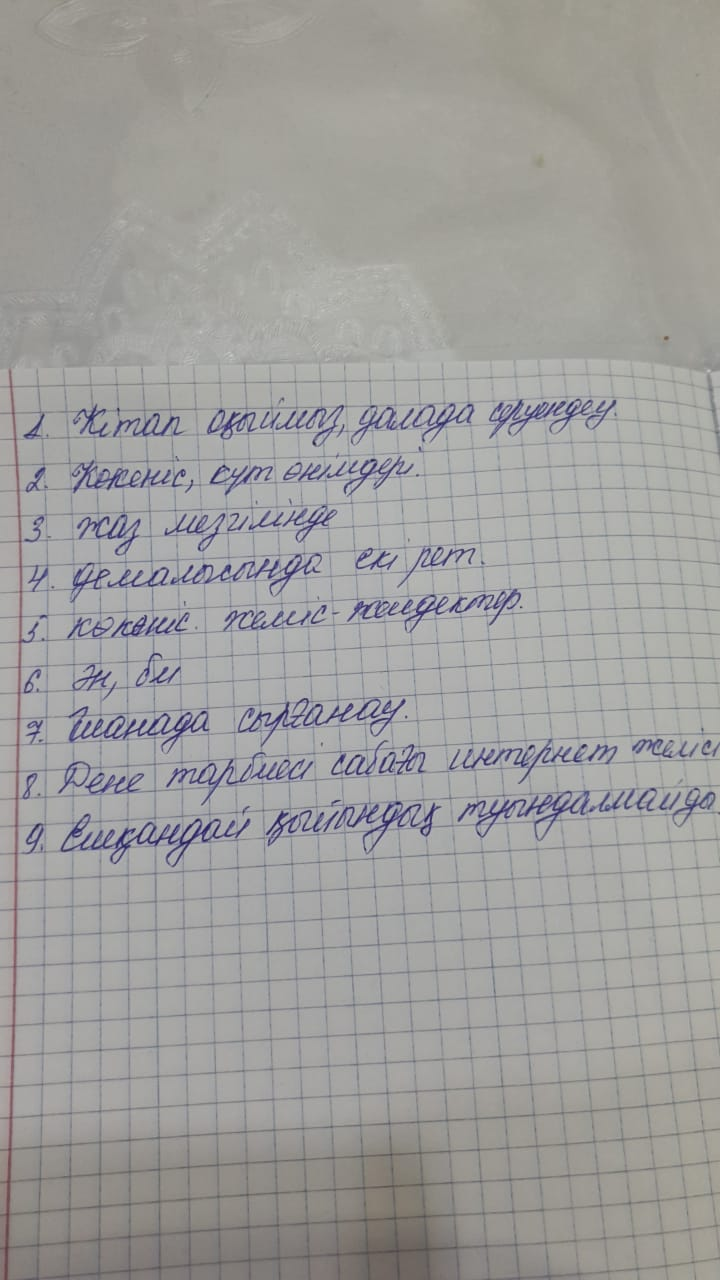 1. Кітап оқыймыз, далада серуендеу.
2. Көкөніс, сүт өнімдері.
3. жаз мезгілінде
4. демалысында екі рет.
5. көкөніс. жеміс-жидектер.
6. Ән, би
7. Шанада сырғанау.
8. Дене тәрбиесі сабағы интернет желісі
9. Ешқандай қыйындық туындалмайды.